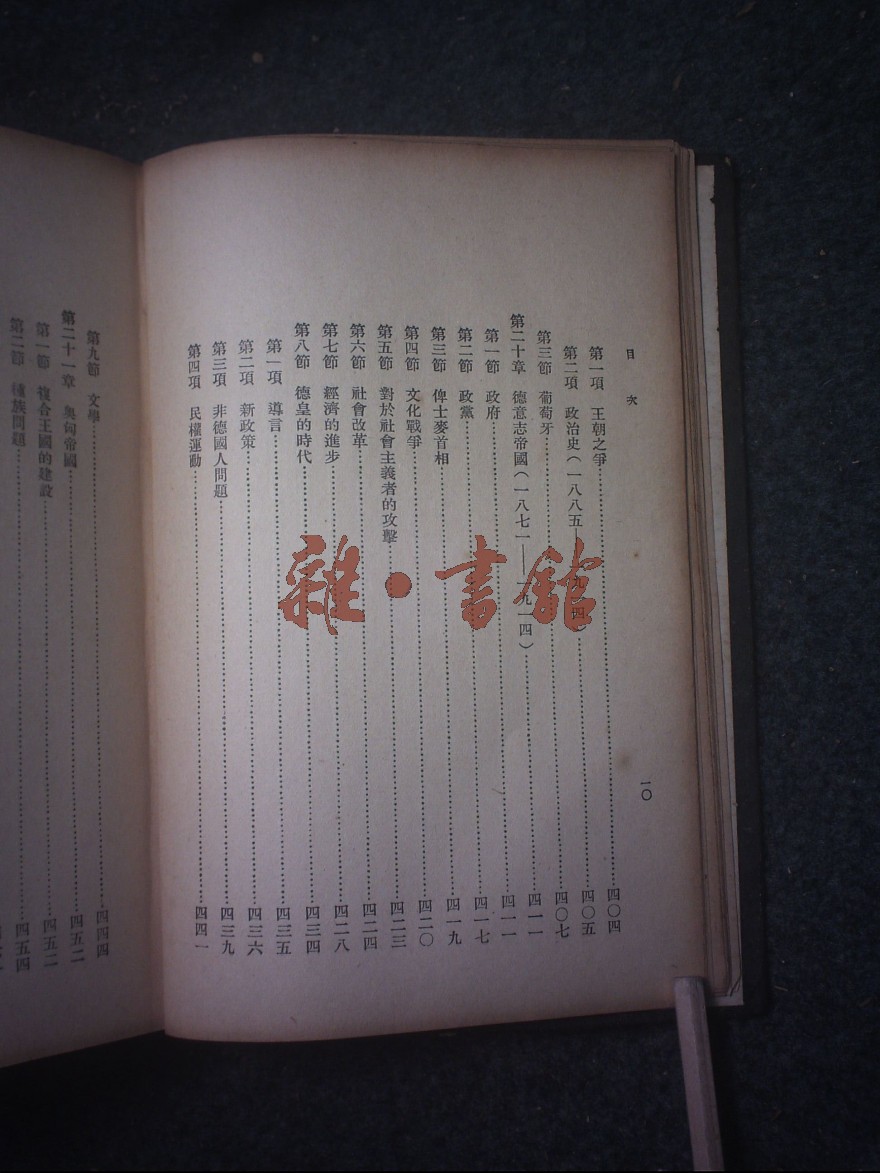 目次
一〇
第一項 王朝之爭……四〇四
第二項 政治史(一八八五——一九一四)……四〇五
第三節 葡萄牙……四〇七
第二十章 德意志帝國(一八七一——一九一四)……四一一
第一節 政府……四一一
第二節 政黨……四一七
第三節 俾士麥首相……四一九
第四節 文化戰爭……四二〇
第五節 對於社會主義者的攻擊……四二三
第六節 社會改革……四二四
第七節 經濟的進步……四二八
第八節 德皇的時代……四三四
第一項 導言……四三五
第二項 新政策……四三六
第三項 非德國人問題……四三九
第四項 民權運動……四四一
第九節 文學……四四四
第二十一章 奧匈帝國……四五二
第一節 複合王國的建設……四五二
第二節 種族問題……四五四
雜·書館